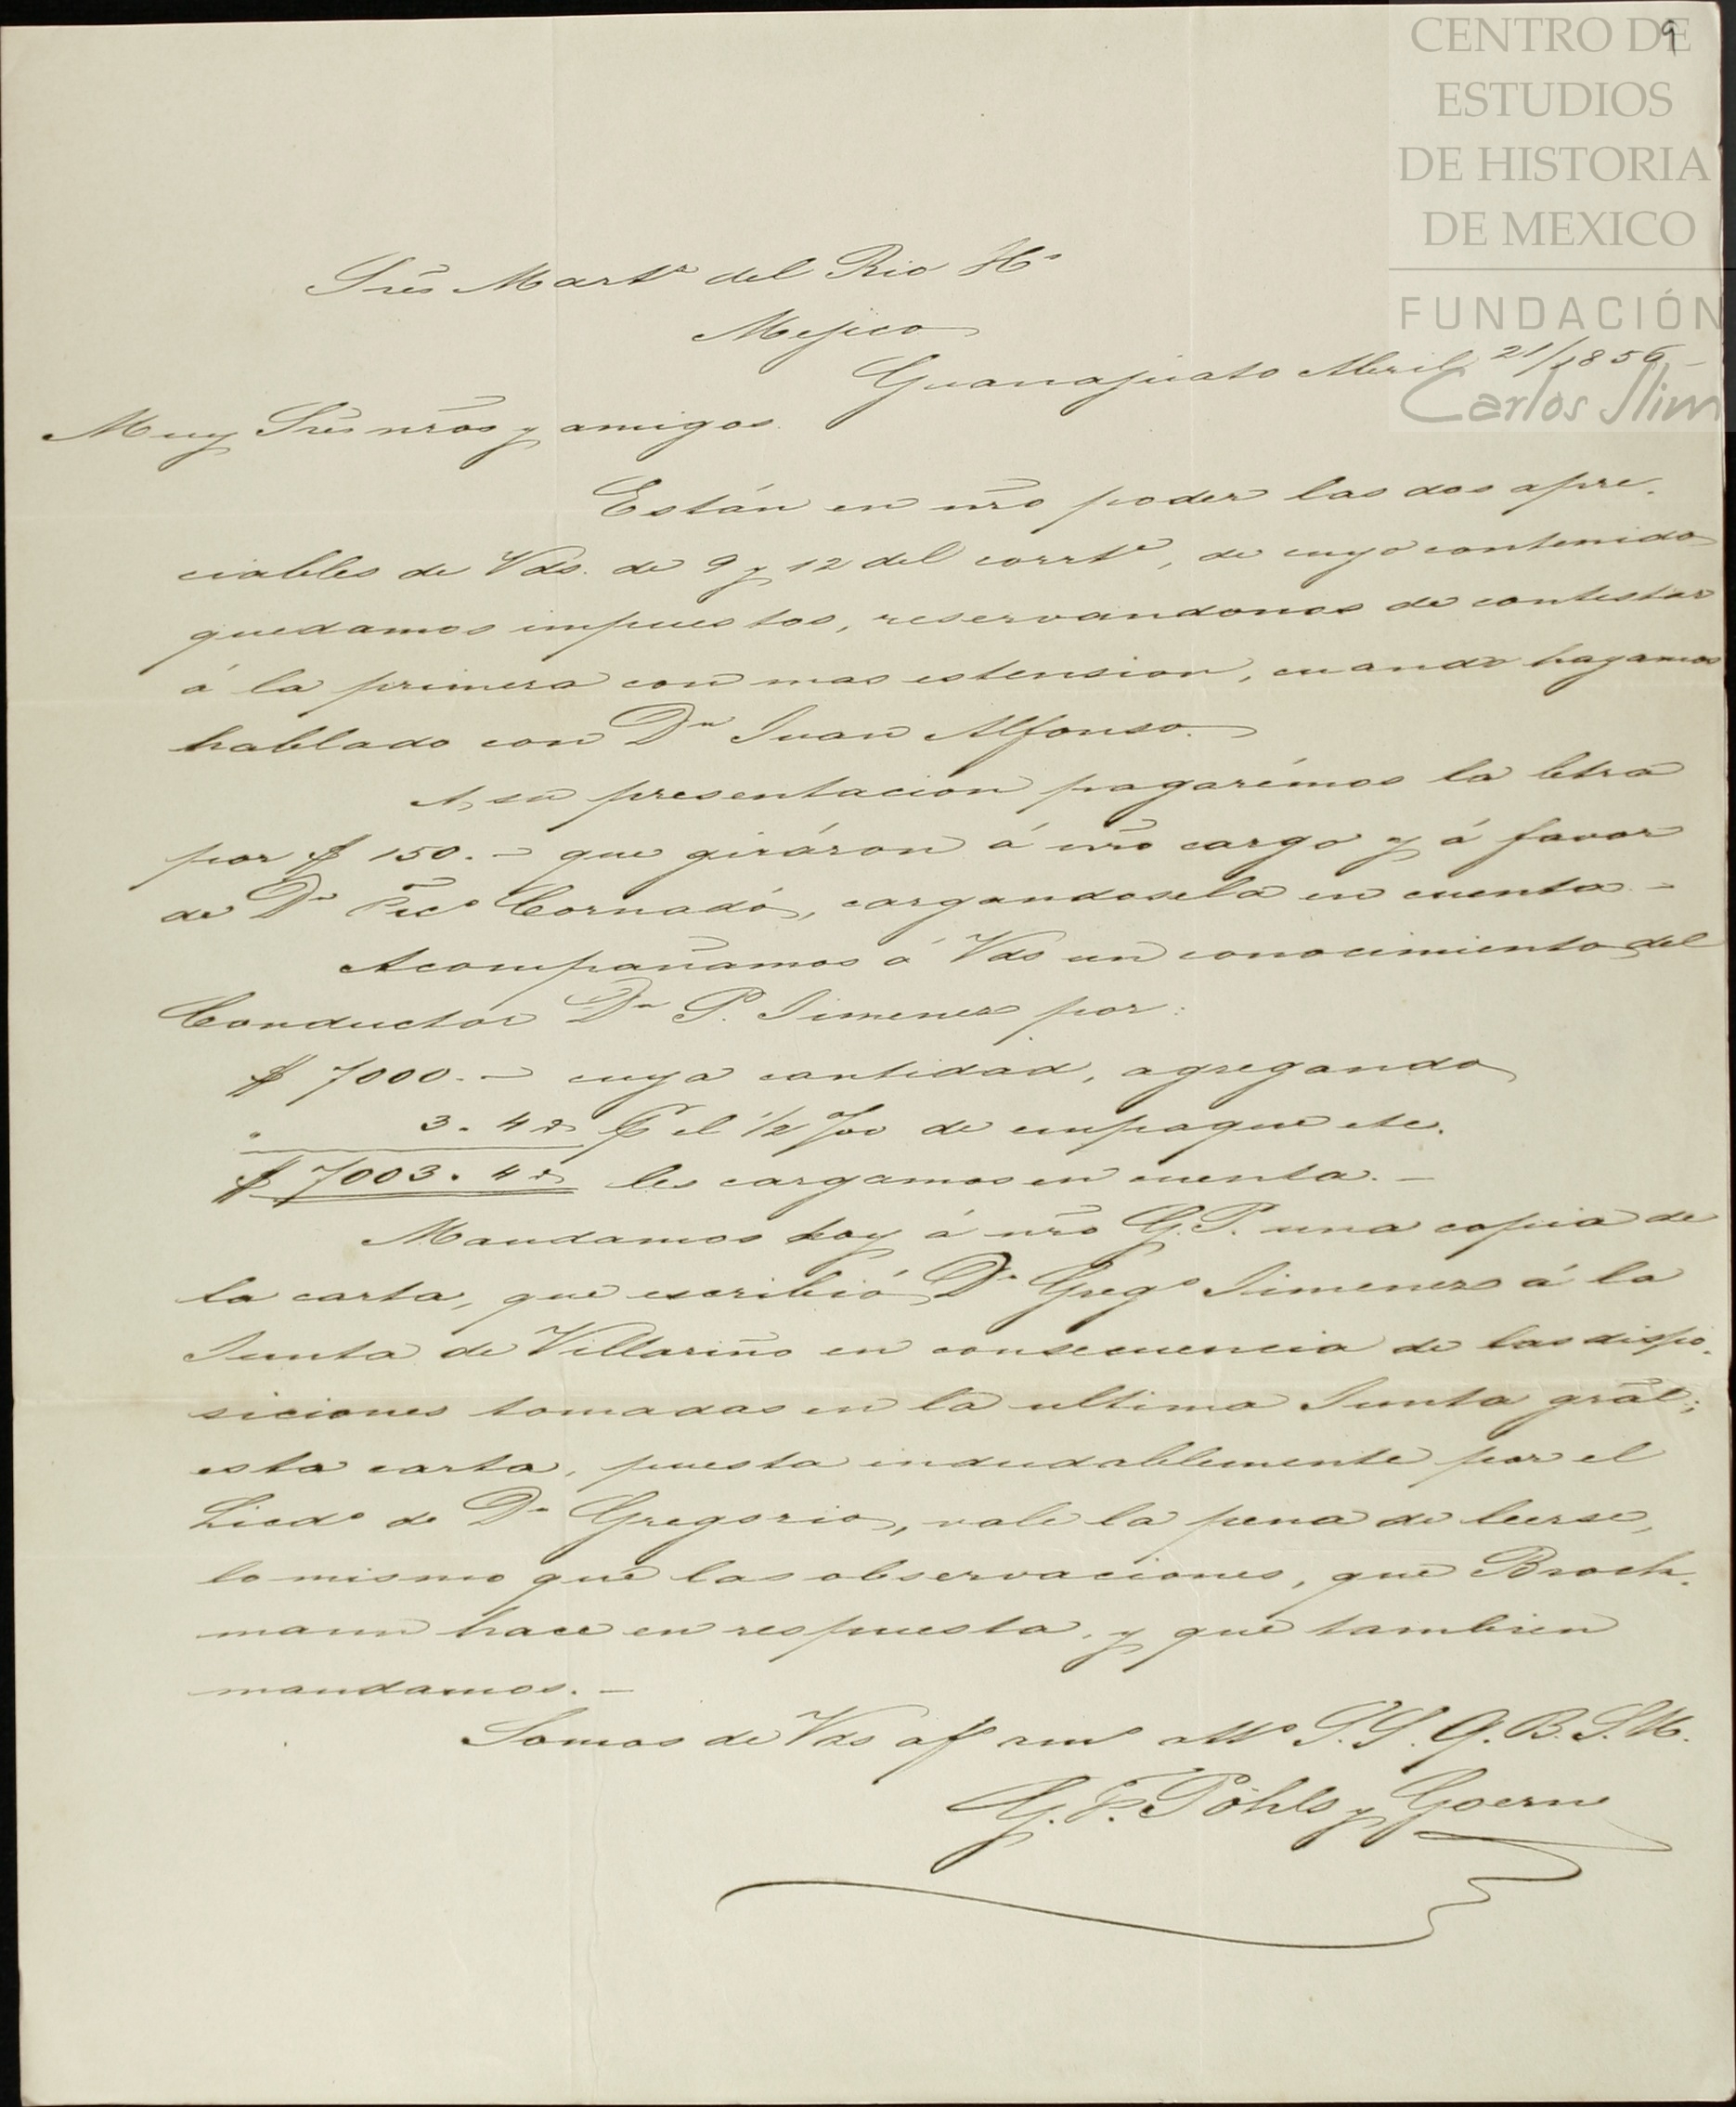 9
CENTRO DE
ESTUDIOS
DE HISTORIA
DE MEXICO
FUNDACIÓN
Carlos Slim
Srēs Martz del Rio Hs
Mejico
Guanajuato Abril 21/1856
Muy Srēs nr̄os y amigos.
Están en nr̄o poder las dos apre-
ciables de Vds. de 9 y 12 del corrte, de cuyo contenido
quedamos impuestos, reservandonos de contestar
á la primera con mas estension, cuando hayamos
hablado con Dn Juan Alfonso.
A su presentacion pagarémos la letra
por $ 150.- que giráron á nr̄o cargo y á favor
de Dn Fr̄co Cornadó, cargandosela en cuenta.-
Acompañamos á Vds un conocimiento del
Conductor Dn P. Jimenez por:
$ 7000.- cuya cantidad, agregando
" 3. 4 rs pr el 1/2 %o de empaque etc.
$ 7003. 4 rs les cargamos en cuenta.-
Mandamos hoy á nr̄o G.P. una copia de
la carta, que escribió Dn Grego Jimenez á la
Junta de Villariño en consecuencia de las dispo-
siciones tomadas en la ultima Junta gr̄al;
esta carta, puesta indudablemente por el
Licdo de Dn Gregorio, vale la pena de leerse,
lo mismo que las observaciones, que Broch-
mann hace en respuesta, y que tambien
mandamos.-
Somos de Vds afs ams attos S.S.Q.B.S.M.
G. P. Pöhls y Goerne